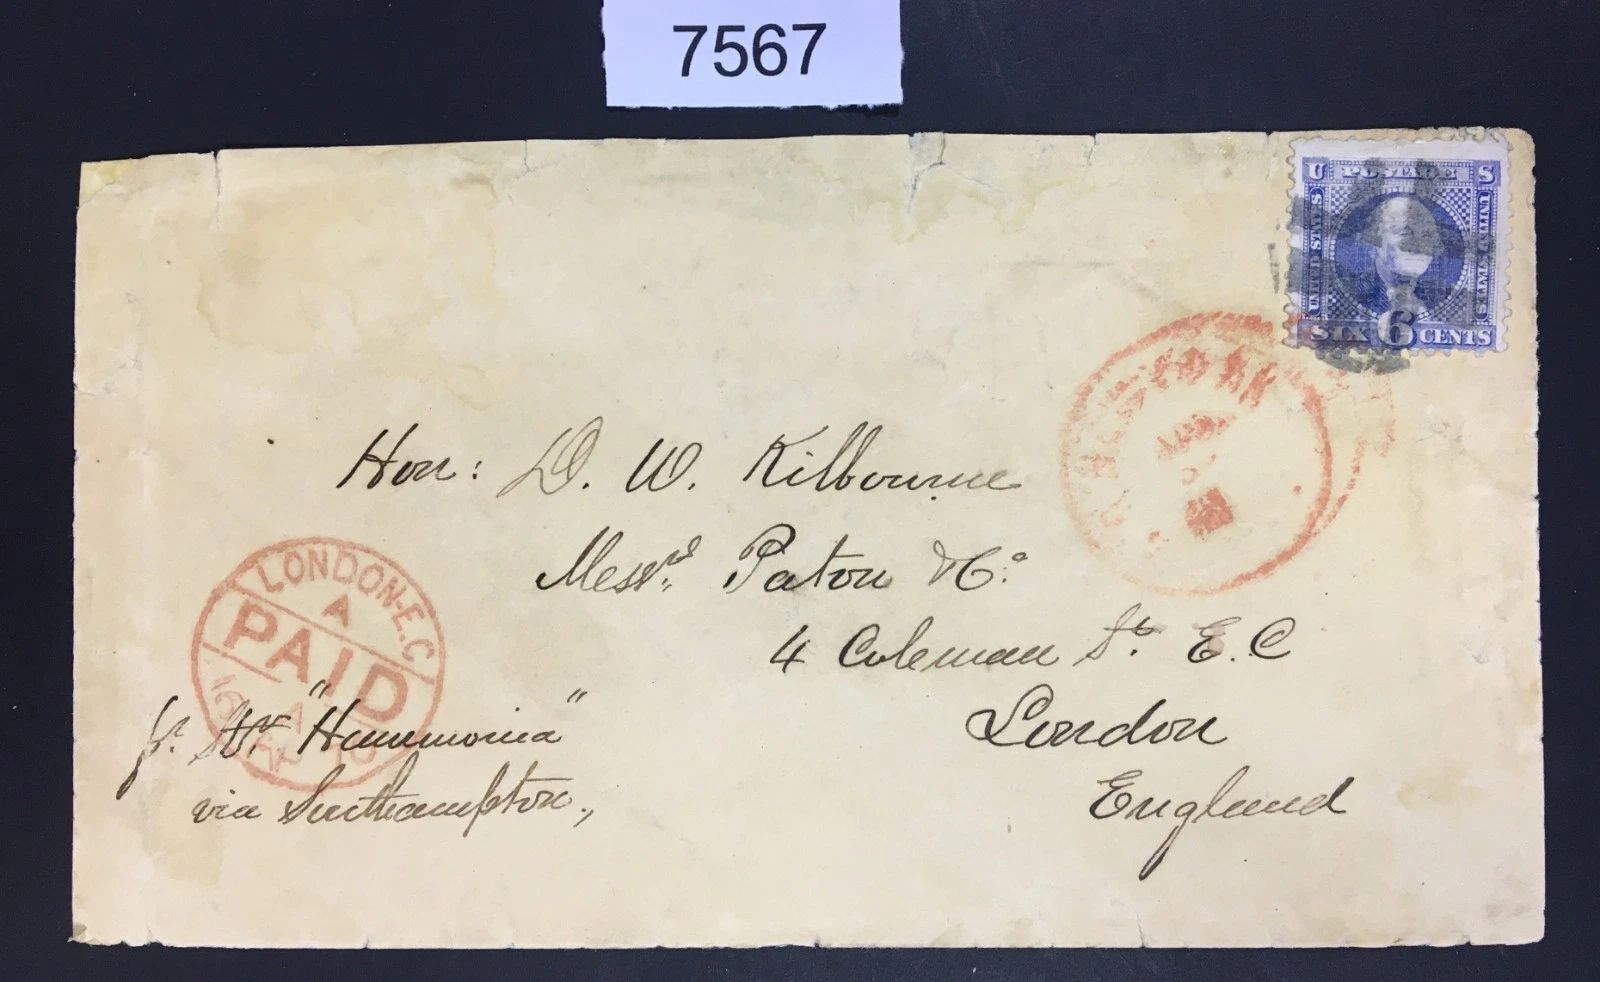 7567
U POSTAGE S
UNITED STATES
UNITED STATES
SIX 6 CENTS
NEW YORK
Hon: D. W. Kilbourne
Messrs. Paton & Co.
4 Coleman St. E.C
London
England
LONDON-E.C
A
PAID
pr. Str "Hammonia"
via Southampton.,